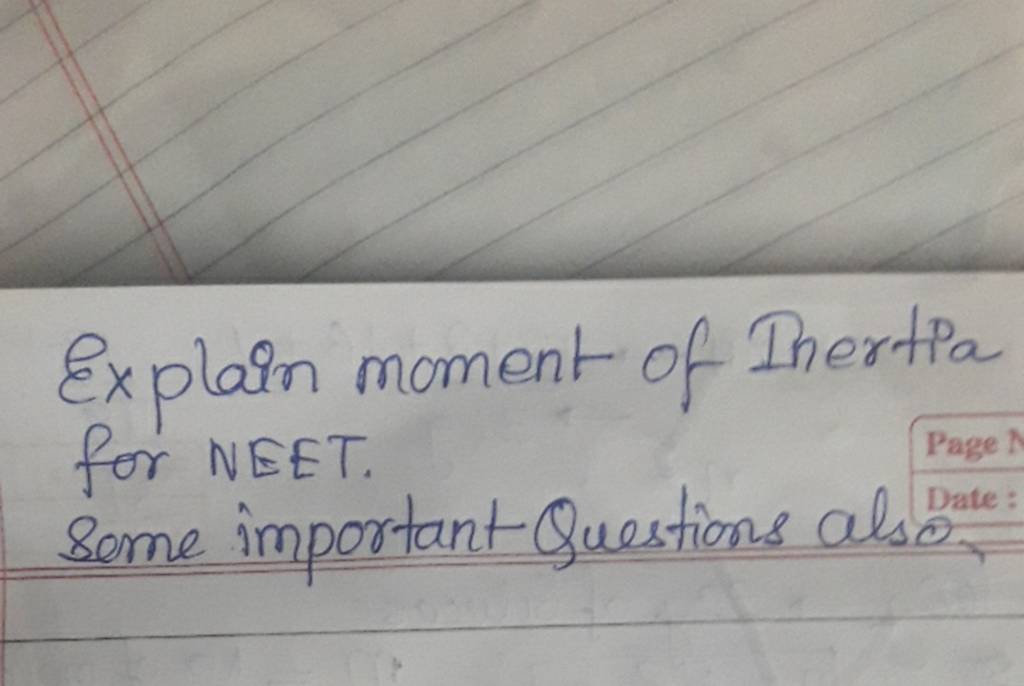 Explain moment of Inertia
for NEET.
Page N
Date :
Some important Questions also